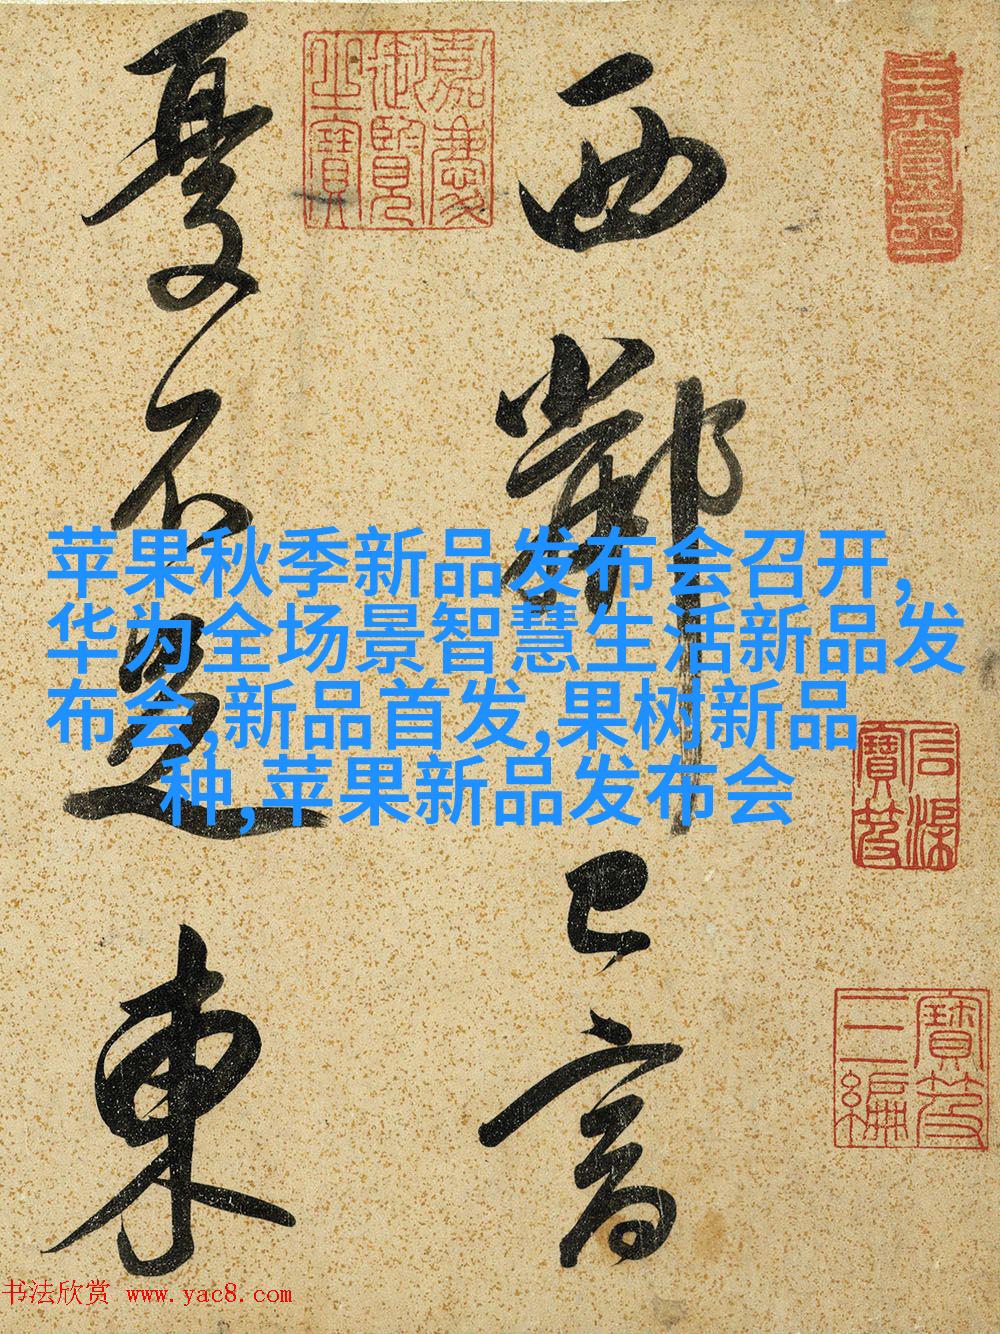 西鄰已富
憂不足東
嘉慶御覽之寶
石渠寶笈
寶笈三編
苹果秋季新品发布会召开,
华为全场景智慧生活新品发
布会,新品首发,果树新品
种,苹果新品发布会
书法欣赏 www.yac8.com